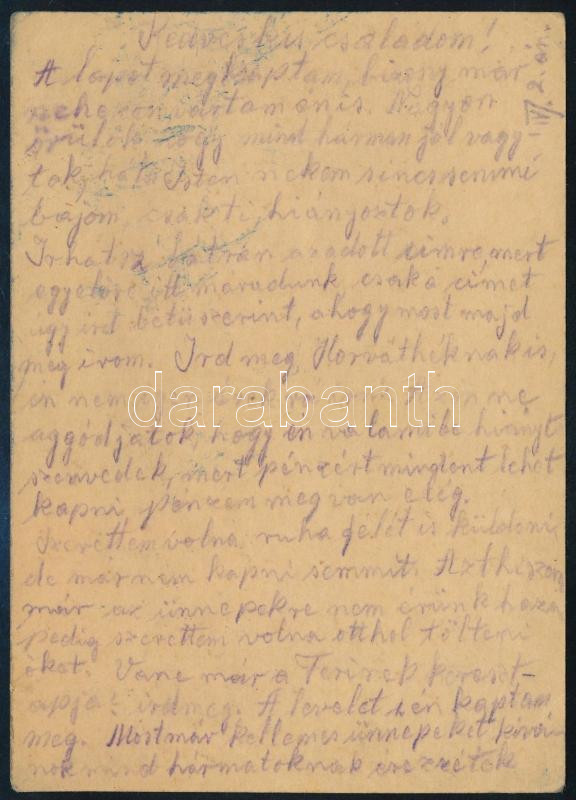 Kedves kis családom!
IV. 2. án.
A lapot megkaptam, bizony már
nehezen vártam én is. Nagyon
örülök hogy mind hárman jól vagy-
tok, hála Isten nekem sincs semmi
bajom, csak ti hiányoztok.
Irhatsz bátran azadott címre, mert
egyelőre itt maradunk, csak a címet
úgy ird betüszerint, ahogy most majd
meg irom. Ird meg Horváthéknak is,
én nem ne
aggódjatok, hogy én valamibe hiányt
szenvedek, mert pénzért mindent lehet
kapni, pénzem meg van elég.
Szerettem volna ruha félét is küldeni
de már nem kapni semmit. Azt hiszem
már az ünnepekre nem érünk haza
pedig szerettem volna otthol tölteni
őket. Vane már a Terinek kereszt-
apja? ird meg. A levelet én kaptam
meg. Mostmár kellemes ünnepeket kívá-
nok mind hármatoknak érezzétek
darabanth